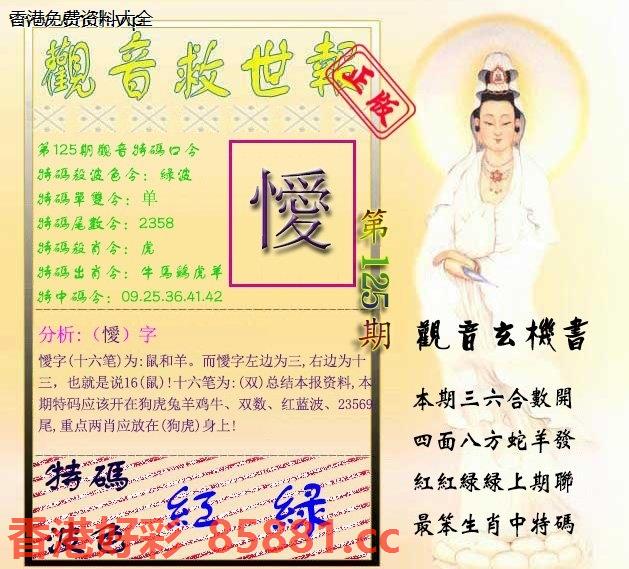 香港免费资料大全
觀音救世報
正版
第125期觀音特碼口令
特碼殺波色令：綠波
特碼單雙令：单
特碼尾數令：2358
特碼殺肖令：虎
特碼出肖令：牛馬鷄虎羊
特中碼令：09.25.36.41.42
懓
第125期
分析:（懓）字
懓字(十六笔)为:鼠和羊。而懓字左边为三,右边为十
三，也就是说16(鼠)!十六笔为:(双)总结本报资料,本
期特码应该开在狗虎兔羊鸡牛、双数、红蓝波、23569
尾,重点两肖应放在(狗虎)身上!
特碼
波色
紅 绿
觀音玄機書
本期三六合數開
四面八方蛇羊發
紅紅綠綠上期聯
最笨生肖中特碼
香港好彩 85881.cc